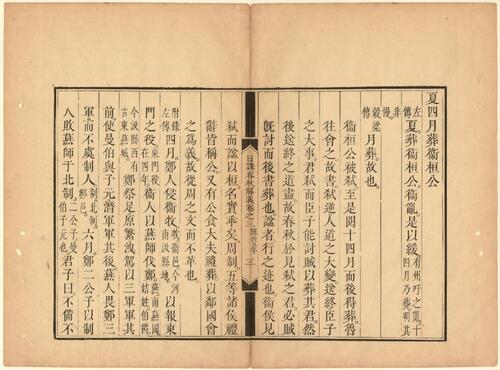 夏四月葬衞桓公
左傳夏葬衞桓公衞亂是以緩有州吁之亂十四月乃葬明其非慢
穀梁傳月葬故也
衞桓公被弒至是閱十四月而後得葬魯
往會之故書弒逆人道之大變送終臣子
之大事君弒而臣子能討賊以葬其君然
後送終之道盡故春秋於見弒之君必賊
既討而後書葬也諡者行之迹也衞侯見
日講春秋解義卷之三 隱公五年 三
弒而諡以桓名實乖矣周制五等諸侯禮
辭皆稱公又有公食大夫禮葬以鄰國會
之為義故從周之文而不革也
附錄左傳四月鄭人侵衞牧牧衞邑今河南汲縣地以報東
門之役東門役在四年衞人以燕師伐鄭燕南燕國姞姓伯爵
今汲縣西有古東燕城鄭祭足原繁洩駕以三軍軍其
前使曼伯與子元潛軍軍其後燕人畏鄭三
軍而不虞制人制北制鄭邑六月鄭二公子以制
人敗燕師于北制二公子曼伯子元也君子曰不備不